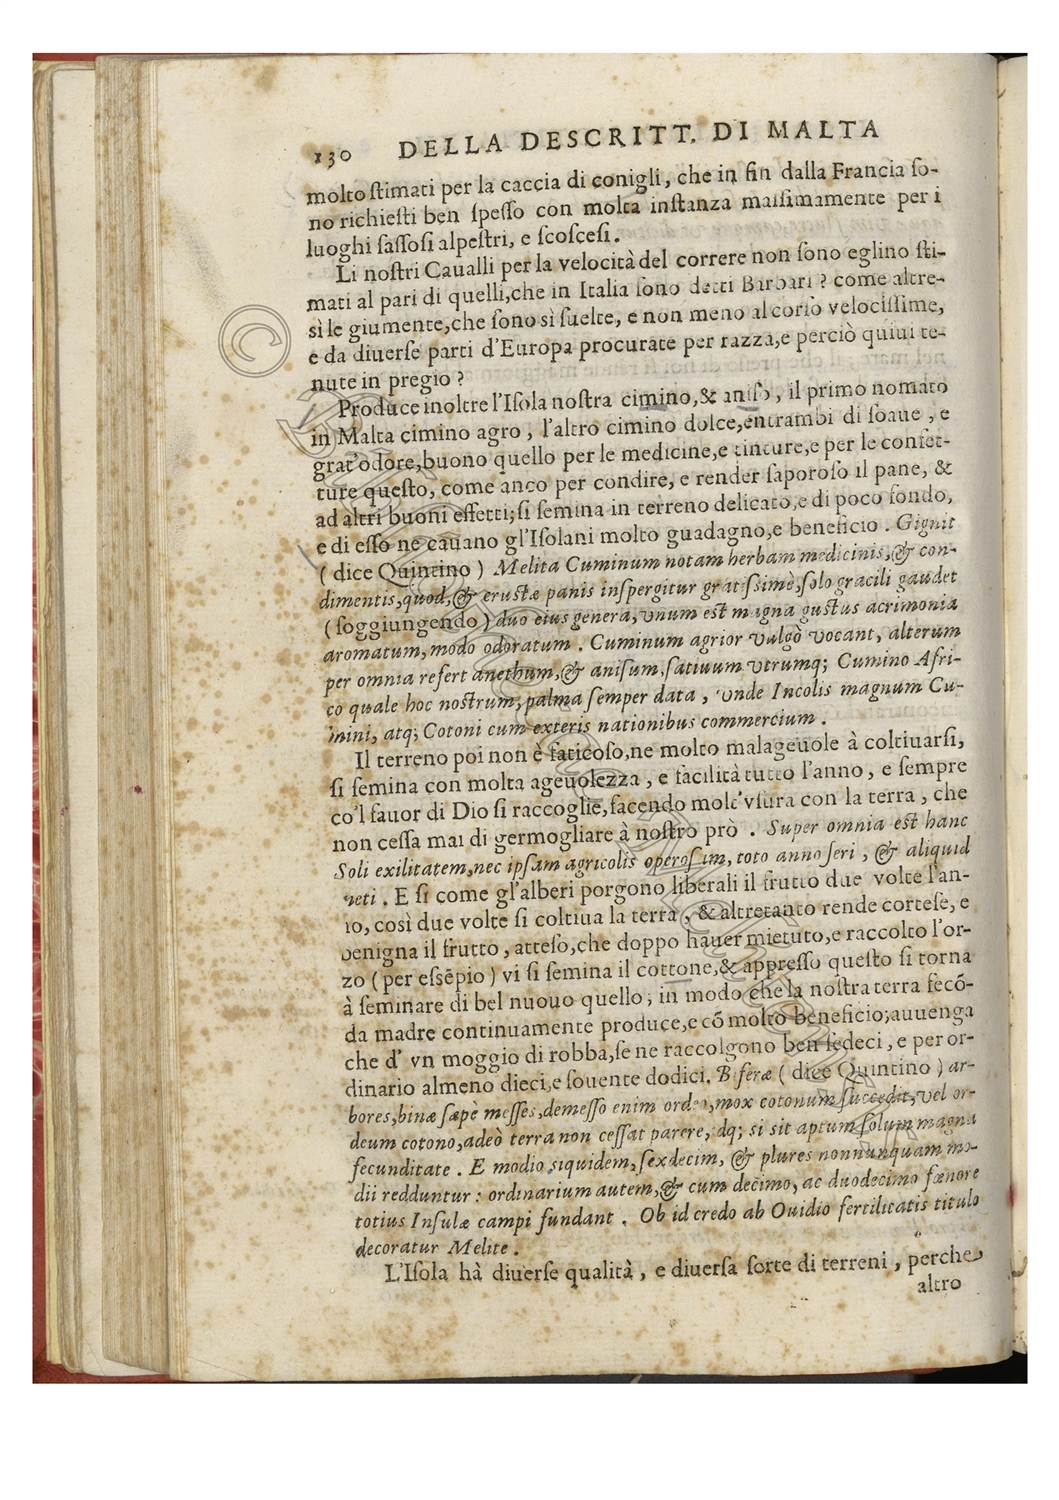 130 DELLA DESCRITT. DI MALTA
molto ſtimati per la caccia di conigli, che in fin dalla Francia ſo-
no richieſti ben ſpeſſo con molta inſtanza maſſimamente per i
luoghi ſaſſoſi alpeſtri, e ſcoſceſi.
Li noſtri Caualli per la velocità del correre non ſono eglino ſti-
mati al pari di quelli, che in Italia ſono detti Barbari? come altre-
sì le giumente, che ſono sì ſuelte, e non meno al corſo velociſſime,
e da diuerſe parti d'Europa procurate per razza, e perciò quiui te-
nute in pregio?
Produce inoltre l'Iſola noſtra cimino, & aniſo, il primo nomato
in Malta cimino agro, l'altro cimino dolce, entrambi di ſoaue, e
grat'odore, buono quello per le medicine, e tinture, e per le confet-
ture queſto, come anco per condire, e render ſaporoſo il pane, &
ad altri buoni effetti; ſi ſemina in terreno delicato, e di poco fondo,
e di eſſo ne cauano gl'Iſolani molto guadagno, e beneficio. Gignit
(dice Quintino) Melita Cuminum notam herbam medicinis, & con-
dimentis, quod, & cruſtæ panis inſpergitur gratiſſimè, ſolo gracili gaudet
(ſoggiungendo) duo eius genera, vnum eſt magna guſtus acrimonia
aromatum, modo odoratum. Cuminum agrior vulgò vocant, alterum
per omnia refert anethum, & aniſum, ſatiuum vtrumq; Cumino Afri-
co quale hoc noſtrum, palma ſemper data, vnde Incolis magnum Cu-
mini, atq; Cotoni cum exteris nationibus commercium.
Il terreno poi non è faticoſo, ne molto malageuole à coltiuarſi,
ſi ſemina con molta ageuolezza, e facilità tutto l'anno, e ſempre
co'l fauor di Dio ſi raccoglie, facendo molt'vſura con la terra, che
non ceſſa mai di germogliare à noſtro prò. Super omnia eſt hanc
Soli exilitatem, nec ipſam agricolis operoſam, toto anno ſeri, & aliquid
meti. E ſi come gl'alberi porgono liberali il frutto due volte l'an-
no, così due volte ſi coltiua la terra, & altretanto rende corteſe, e
benigna il frutto, atteſo, che doppo hauer mietuto, e raccolto l'or-
zo (per eſsẽpio) vi ſi ſemina il cottone, & appreſſo queſto ſi torna
à ſeminare di bel nuouo quello; in modo che la noſtra terra fecõ-
da madre continuamente produce, e cõ molto beneficio; auuenga
che d' vn moggio di robba, ſe ne raccolgono ben ſedeci, e per or-
dinario almeno dieci, e ſouente dodici. Biferæ (dice Quintino) ar-
bores, binæ ſæpè meſſes, demeſſo enim ordeo, mox cotonum ſuccedit, vel or-
deum cotono, adeò terra non ceſſat parere, dq; ſi sit aptum ſolum magna
fecunditate. E modio ſiquidem, ſexdecim, & plures nonnunquam mo-
dii redduntur: ordinarium autem, & cum decimo, ac duodecimo fænore
totius Inſulæ campi fundant. Ob id credo ab Ouidio fertilitatis titulo
decoratur Melite.
L'Iſola hà diuerſe qualità, e diuerſa ſorte di terreni, perche
altro